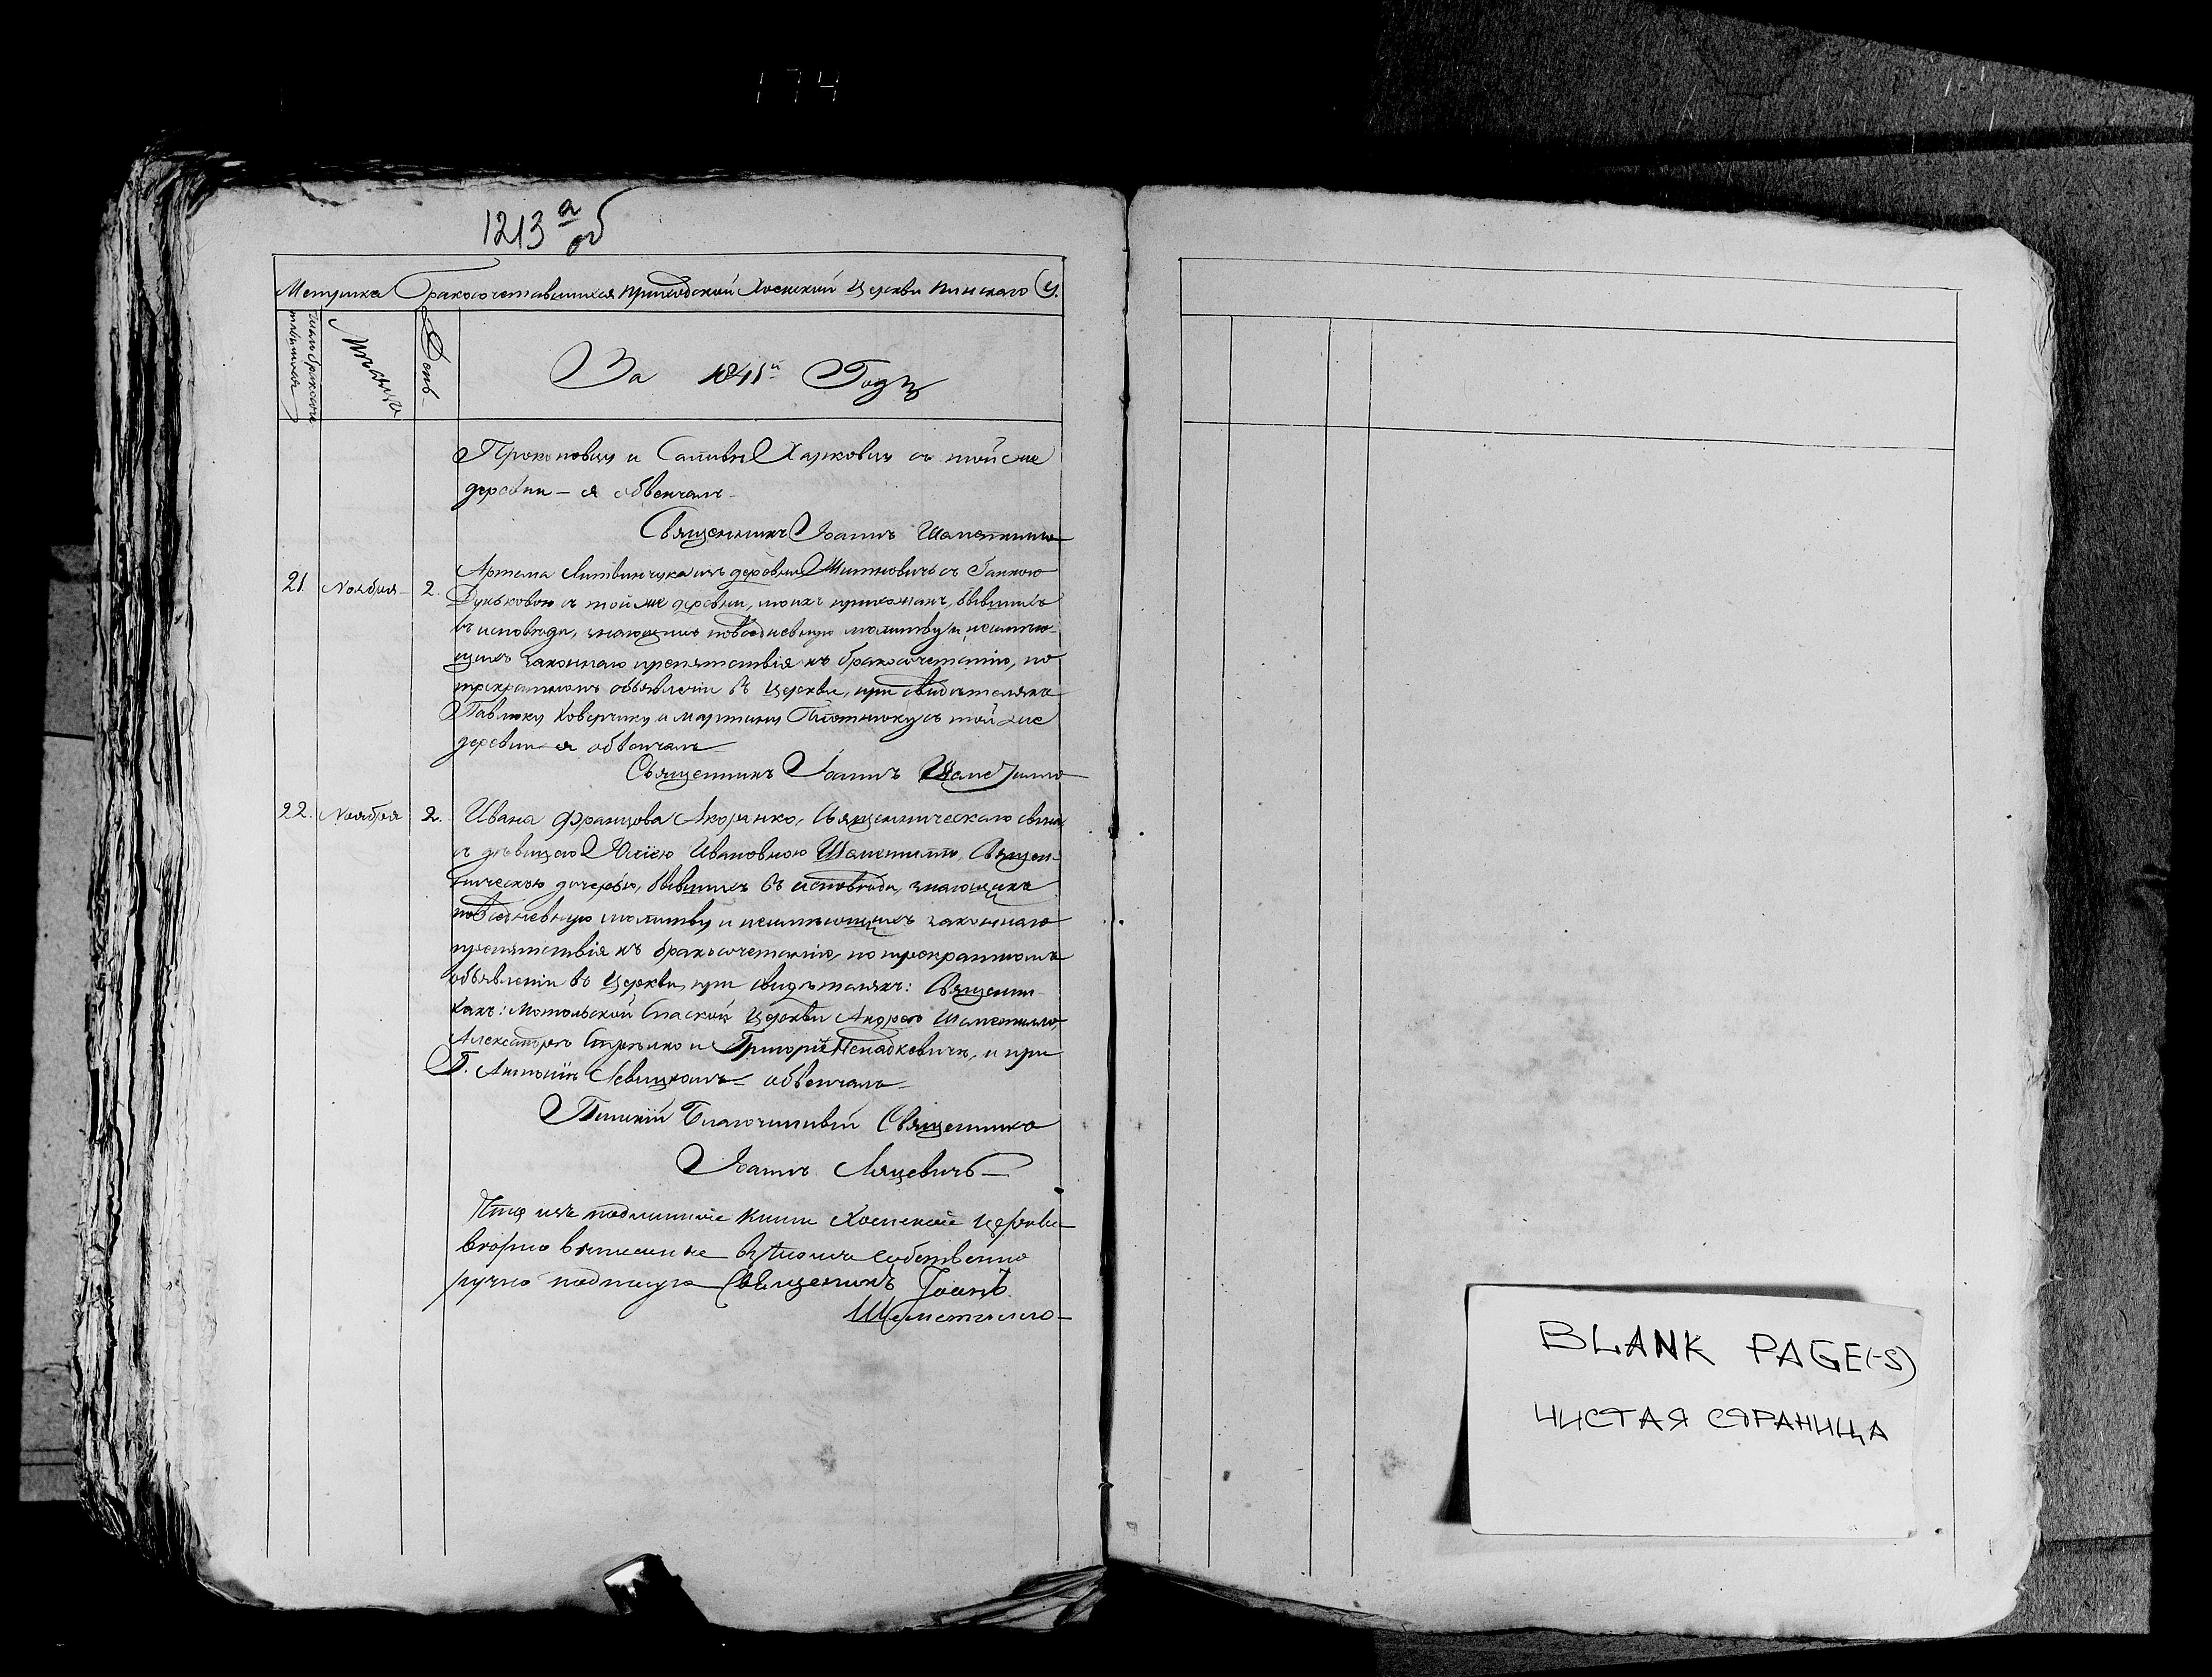 174
1213 а об
Метрика Бракосочетавшихся приходской Хоенской Церкви Пинского У.
Число бракосоче
тавшихся
Месяцъ
День
За 1841й Годъ
Прокоповичу и Харковичу съ той же
деревни – я обвенчалъ
Священникъ Іоаннъ Шеметилло
21. Ноября 2. Артема Литвинчука изъ деревни съ Ганною
съ той же деревни, моихъ прихожанъ, бывшихъ
въ исповеди, знающихъ повседневную молитву и неимею-
щихъ законнаго препятствія къ бракосочетанію, по
троекратномъ объявленіи въ Церкви, при свидетеляхъ
Павлюку Коверчику и Мартину съ той же
деревни я обвенчалъ
Священникъ Іоаннъ Шеметилло
22. Ноября 2. Ивана Францова Священническаго сына
съ девицею Юліею Ивановною Шеметилло, Священ-
ническою дочерью, бывшихъ въ исповеди, знающихъ
повседневную молитву и неимеющихъ законнаго
препятствія къ бракосочетанію, по троекратномъ
объявленіи въ Церкви, при свидетеляхъ: Священни-
кахъ: Мотольской Спаской Церкви Андрею Шеметилло,
Александре и Григорій, и при
Г. Антоніи Левицкомъ – обвенчалъ
Пинскій Благочинный Священникъ
Іоаннъ Ляцевичъ
изъ подлинной книги Хоенской церкви
верно собственно
ручно подпишусь Священикъ Іоанъ
Шеметилло
BLANK PAGE(-S)
ЧИСТАЯ СТРАНИЦА